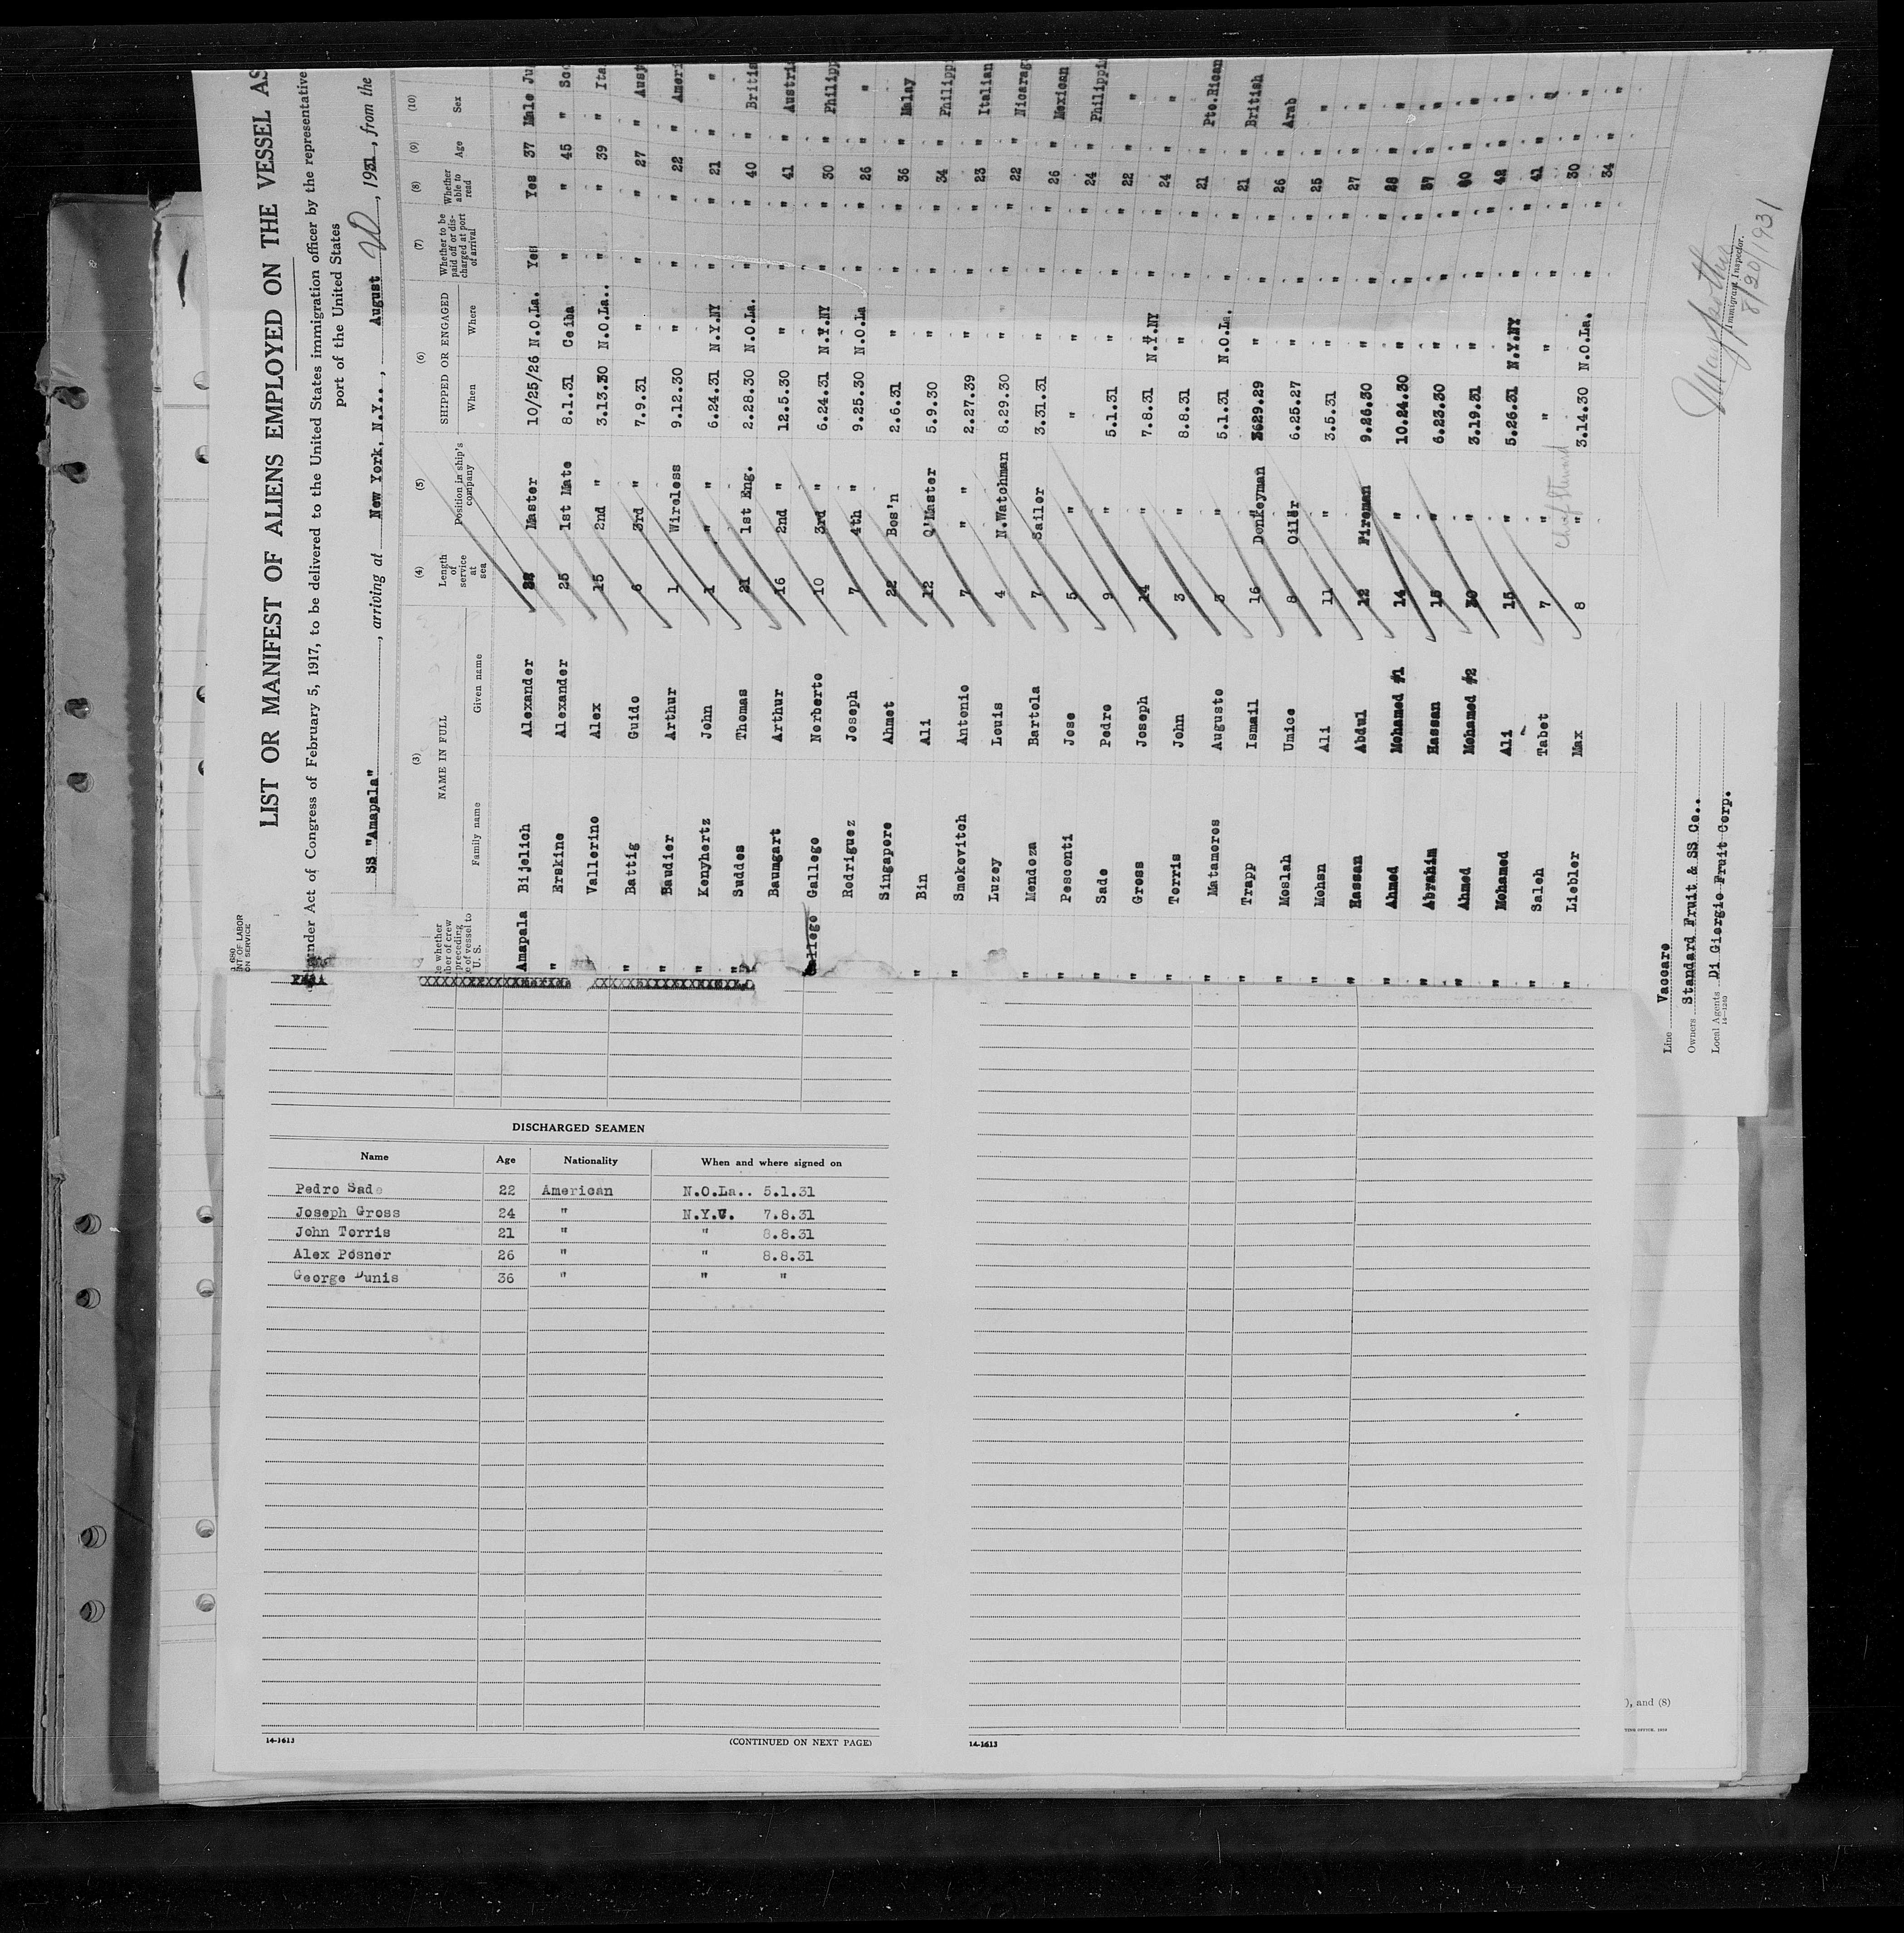 680
NT OF LABOR
ON SERVICE
LIST OR MANIFEST OF ALIENS EMPLOYED ON THE VESSEL AS
under Act of Congress of February 5, 1917, to be delivered to the United States immigration officer by the representative
port of the United States
SS "Amapala", arriving at New York. N.Y.., August 20, 1931, from the
(3) (4) (5) (6) (7) (8) (9) (10)
e whether
ber of crew
preceding
e of vessel to
U. S.
NAME IN FULL
Family name Given name
Length of service at sea
Position in ship's company
SHIPPED OR ENGAGED
When Where
Whether to be paid off or discharged at port of arrival
Whether able to read
Age
Sex
Amapala Bijelich Alexander 28 Master 10/25/26 N.O.La. Yes Yes 37 Male Ju
" Erskine Alexander 25 1st Mate 8.1.31 Ceiba " " 45 " Sco
Vallerino Alex 15 2nd " 3.13.30 N.O.La.. " " 39 " Ita
" Battig Guido 6 3rd " 7.9.31 " " 27 " Aust
" Baudier Arthur 1 Wireless 9.12.30 " " 22 " Ameri
" Kenyhertz John 1 " 6.24.31 N.Y.NY " " 21 " "
" Suddes Thomas 21 1st Eng. 2.28.30 N.O.La. " " 40 " Britis
Baumgart Arthur 16 2nd " 12.5.30 " " " 41 " Austri
Gallego Gallego Norberto 10 3rd " 6.24.31 N.Y.NY " " 30 " Philipp
Rodriguez Joseph 7 4th " 9.25.30 N.O.La " " 26 " "
Singapore Ahmet 22 Bos'n 2.6.31 " " " 36 " Malay
" Bin Ali 12 Q'Master 5.9.30 " " " 34 " Philipp
" Smokovitch Antonio 7 " " 2.27.39 " " " 23 " Italian
Luzey Louis 4 N.Watchman 8.29.30 " " " 22 " Nicarag
" Mendoza Bartola 7 Sailor 3.31.31 " " " 26 " Mexican
" Pesconti Jose 5 " " " " " 24 " Philippi
" Sade Pedro 9 " 5.1.31 " " " 22 " "
" Gross Joseph 14 " 7.8.31 N.Y.NY " " 24 " "
" Torris John 3 " 8.8.31 " " " 21 " Pto.Rican
" Matamoros Auguste 3 " 5.1.31 N.O.La. " " 21 " British
" Trapp Ismail 16 Donkeyman 3629.29 " " " 26 " Arab
" Moslah Umice 8 Oiler 6.25.27 " " " 25 " "
" Mohsn Ali 11 " 3.5.31 " " " 27 " "
" Hassan Abdul 12 Fireman 9.26.30 " " " 28 " "
" Ahmed Mohamed #1 14 " 10.24.30 " " " 37 " "
" Abrahim Hassan 15 " 6.23.30 " " " 40 " "
" Ahmed Mohamed #2 30 " 3.19.31 " " " 42 " "
" Mohamed Ali 15 " 5.26.31 N.Y.NY " " 41 " "
" Saleh Tabet 7 " " " " " 30 " "
" Liebler Max 8 " Chief Steward 3.14.30 N.O.La. " " 34 " "
Line Vaccaro
Owners Standard Fruit & SS Co..
Local Agents Di Giorgio Fruit Corp.
14—1240
Immigrant Inspector.
8/20/1931
DISCHARGED SEAMEN
Name Age Nationality When and where signed on
Pedro Sade 22 American N.O.La.. 5.1.31
Joseph Gross 24 " N.Y.C. 7.8.31
John Torris 21 " " 8.8.31
Alex Posner 26 " " 8.8.31
George Dunis 36 " " "
14-1613
(CONTINUED ON NEXT PAGE)
14-1613
), and (8)